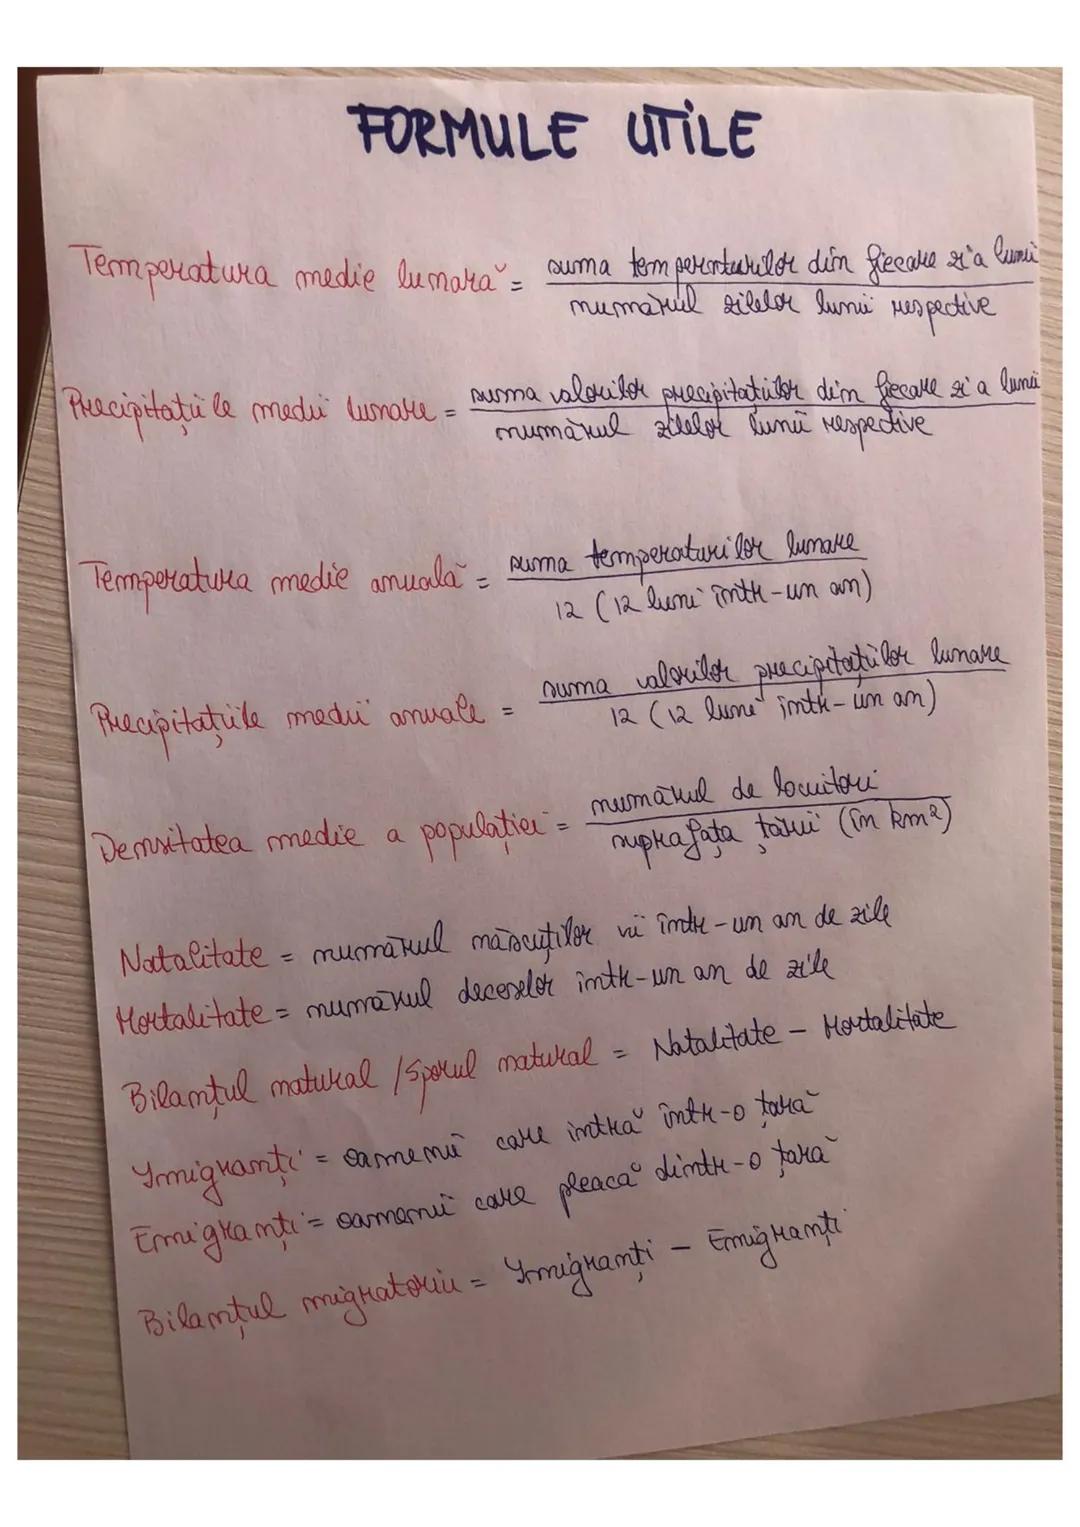 FORMULE UTILE
Temperatura medie lunară = suma temperaturilor din fiecare zi a lunii
numărul zilelor lunii respective
Precipitațiile medii lunare = suma valorilor precipitațiilor din fiecare zi a lunii
numărul zilelor lunii respective
Temperatura medie anuală = suma temperaturilor lunare
12 (12 luni într-un an)
Precipitațiile medii anuale = suma valorilor precipitațiilor lunare
12 (12 luni într-un an)
Densitatea medie a populației = numărul de locuitori
suprafața țării (în km²)
Natalitate = numărul născuților vii într-un an de zile
Mortalitate = numărul deceselor într-un an de zile
Bilanțul natural / Sporul natural = Natalitate - Mortalitate
Imigranți = oamenii care intră într-o țară
Emigranți = oamenii care pleacă dintr-o țară
Bilanțul migratoriu = Imigranți - Emigranți